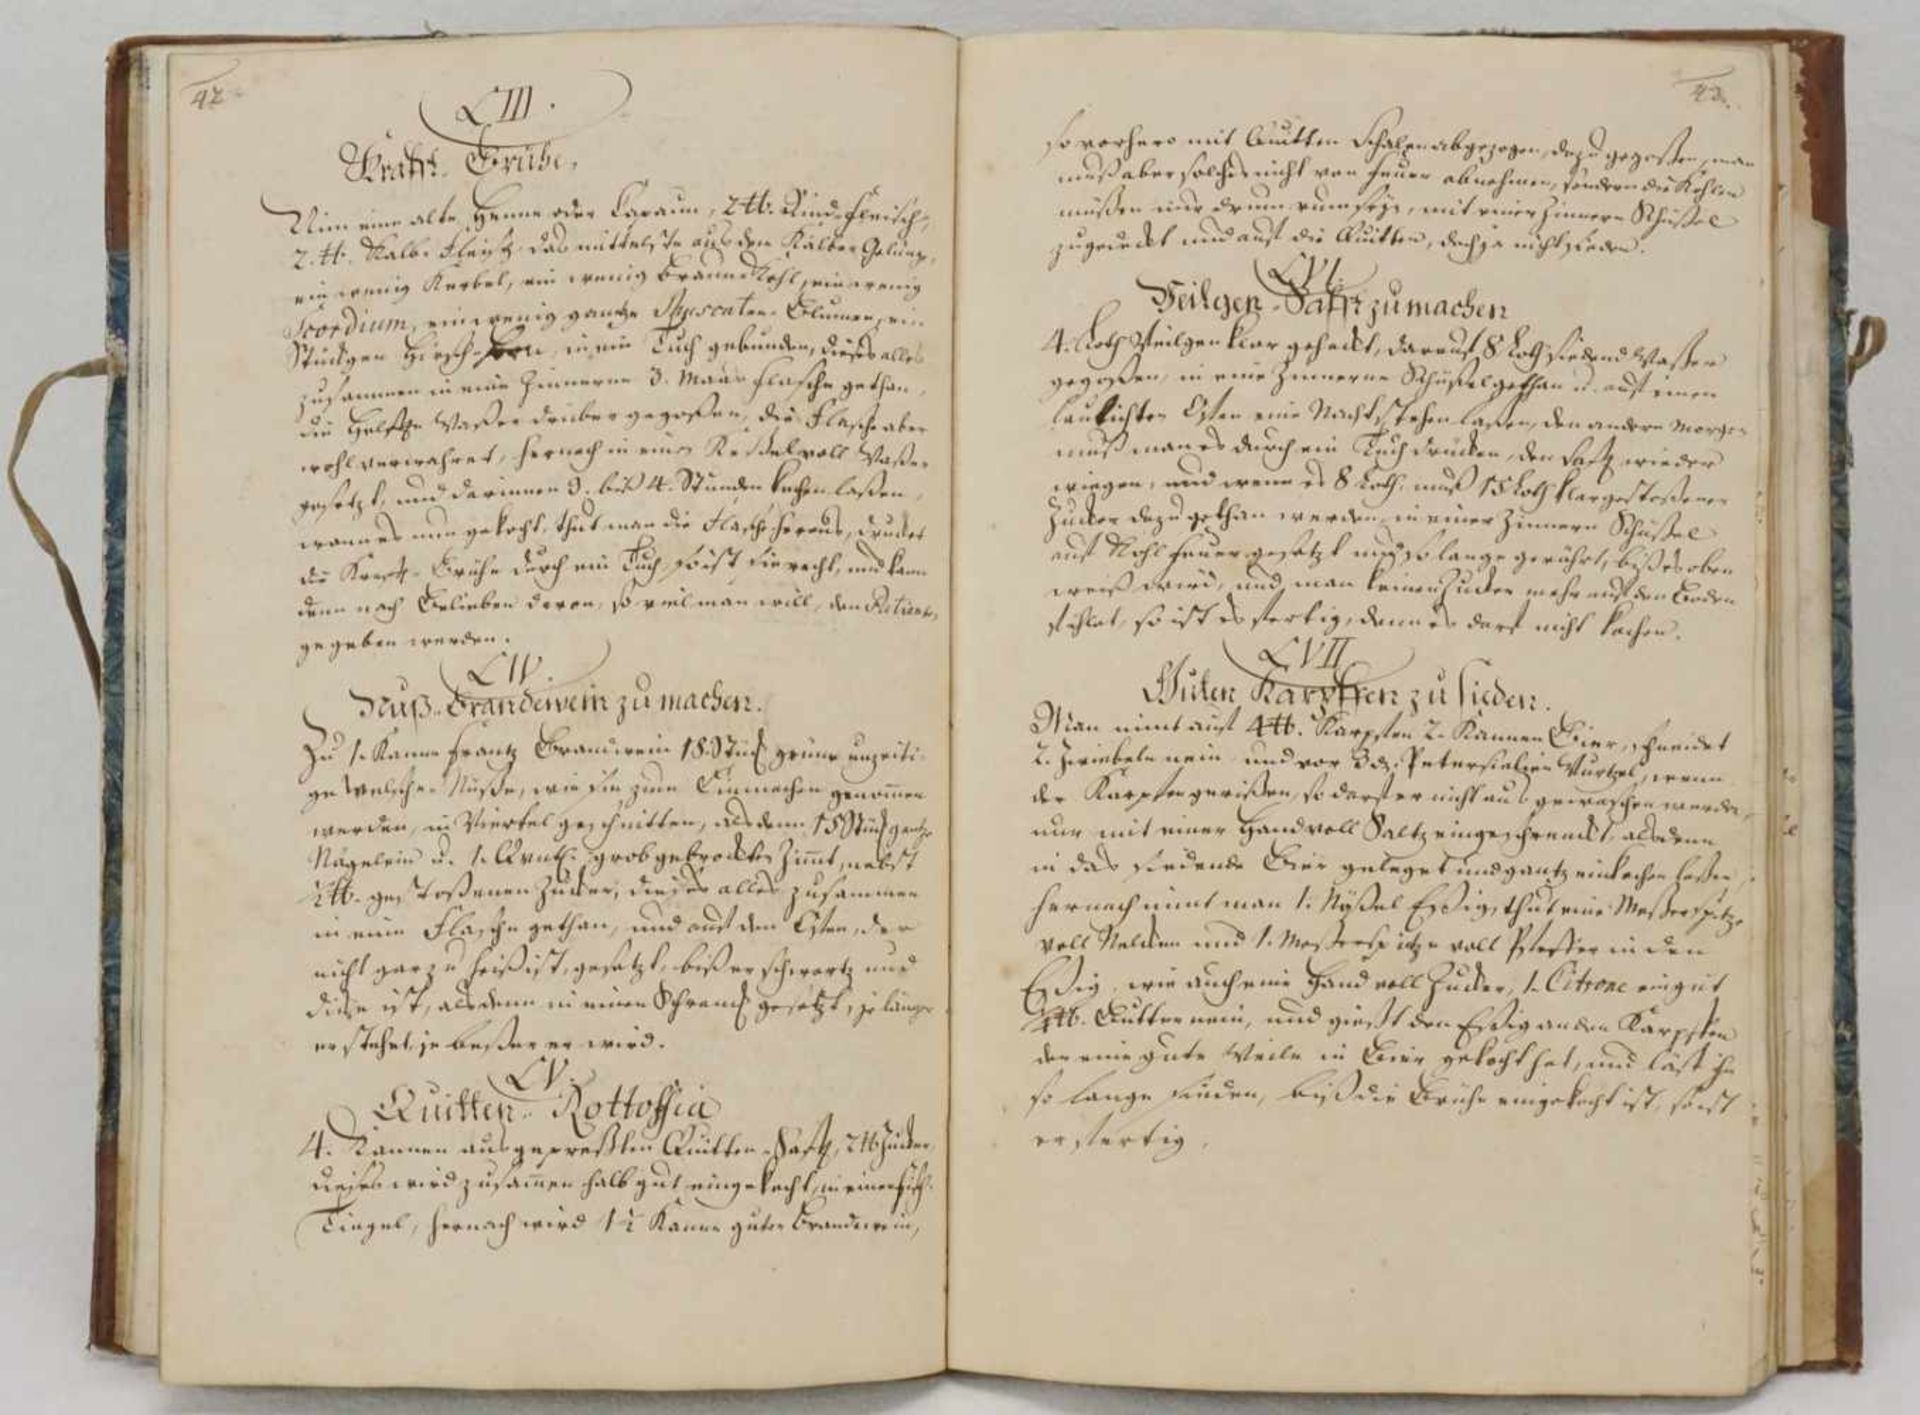 42
CIII.
Krafft-Brühe.
Nim eine alte Henne oder Capaun, 2 ℔. Rind-Fleisch,
2. ℔. Kalb-Fleisch, das mittelste aus den Kälber Gelüng,
ein wenig Kerbel, ein wenig braune Kohl, ein wenig
Scordium, ein wenig gantze Muscaten-Blumen, ein
Stückgen Hirsch-Horn, in ein Tuch gebunden, dieses alles
zusammen in eine Zinnerne 3. Maas Flasche gethan,
die Helffte Waßer drüber gegoßen, die Flasche aber
wohl verwahret, hernach in einen Keßel voll Waßer
gesetzt, und darinnen 3. biß 4. Stunden kochen laßen,
wann es nun gekocht, thut man die Flasche heraus, drucket
die Krafft-Brühe durch ein Tuch, so ist sie recht, und kann
denn nach Belieben davon, so viel man will, den Patienten
gegeben werden.
CIV.
Nuß-Brandewein zu machen.
Zu 1. Kanne Frantz Brandwein 18 Stück grüne unzeiti-
ge welsche Nüße, wie sie zum Einmachen genommen
werden, in Viertel geschnitten, alsdenn 15 Stück gantze
Nägelein u. 1. Qvntl. grob gebrockten Zimmt, nebst
½ ℔. gestoßenen Zucker, dieses alles zusammen
in eine Flasche gethan, und auf den Ofen, der
nicht gar zu heiß ist, gesetzt, biß er schwartz und
dicke ist, alsdenn in einen Schranck gesetzt, je länger
er stehet, je beßer er wird.
CV.
Quitten-Rottoffia
4. Kannen ausgepreßten Quitten-Safft, 2 ℔ Zucker,
dieses wird zusammen halb gut eingekocht, in einem
Tiegel, hernach wird 1½ Kanne guter Brandewein,
43.
so vorhero mit Quitten Schalen abgezogen, dazu gegoßen, man
muß aber solches nicht vom Feuer abnehmen, sondern die Kohlen
müßen nur drum rum seyn, mit einer Zinnern Schüßel
zugedeckt und auf die Quitten, doch ja nicht sieden.
CVI.
Veilgen-Safft zu machen
4. Loth Veilgen klar gehackt, darauf 8 Loth siedend Waßer
gegoßen, in eine Zinnerne Schüßel gethan u. auf einen
laulichten Ofen eine Nacht stehen laßen, den andern Morgen
muß man es durch ein Tuch drücken, den Safft wieder
wiegen, und wenn es 8 Loth, muß 15 Loth klar gestoßener
Zucker dazu gethan werden, in einer Zinnern Schüßel
auf Kohl Feuer gesetzt und so lange gerührt, biß es oben
weiß wird, und man keinen Zucker mehr auf den Boden
fühlet, so ist es fertig, denn es darf nicht kochen.
CVII
Guten Karpffen zu sieden.
Man nimt auf 4 ℔. Karpffen 2. Kannen Bier, schneidet
2. Zwiebeln nein und vor 3 d. Petersielien Wurtzel, wenn
der Karpfen gerißen, so darf er nicht ausgewaschen werden,
nur mit einer Handvoll Saltz eingeschrenckt, alsdenn
in das siedende Bier geleget und gantz einkochen laßen,
hernach nimt man 1. Nößel Eßig, thut eine Meßerspitze
voll Nelcken und 1. Meßerspitze voll Pfeffer in den
Eßig, wie auch eine Hand voll Zucker, 1. Citrone ein gut
℔. Butter nein, und gießt den Eßig an den Karpffen
der eine gute Weile in Bier gekocht hat, und läst ihn
so lange sieden, biß die Brühe eingekocht ist, so ist
er fertig.